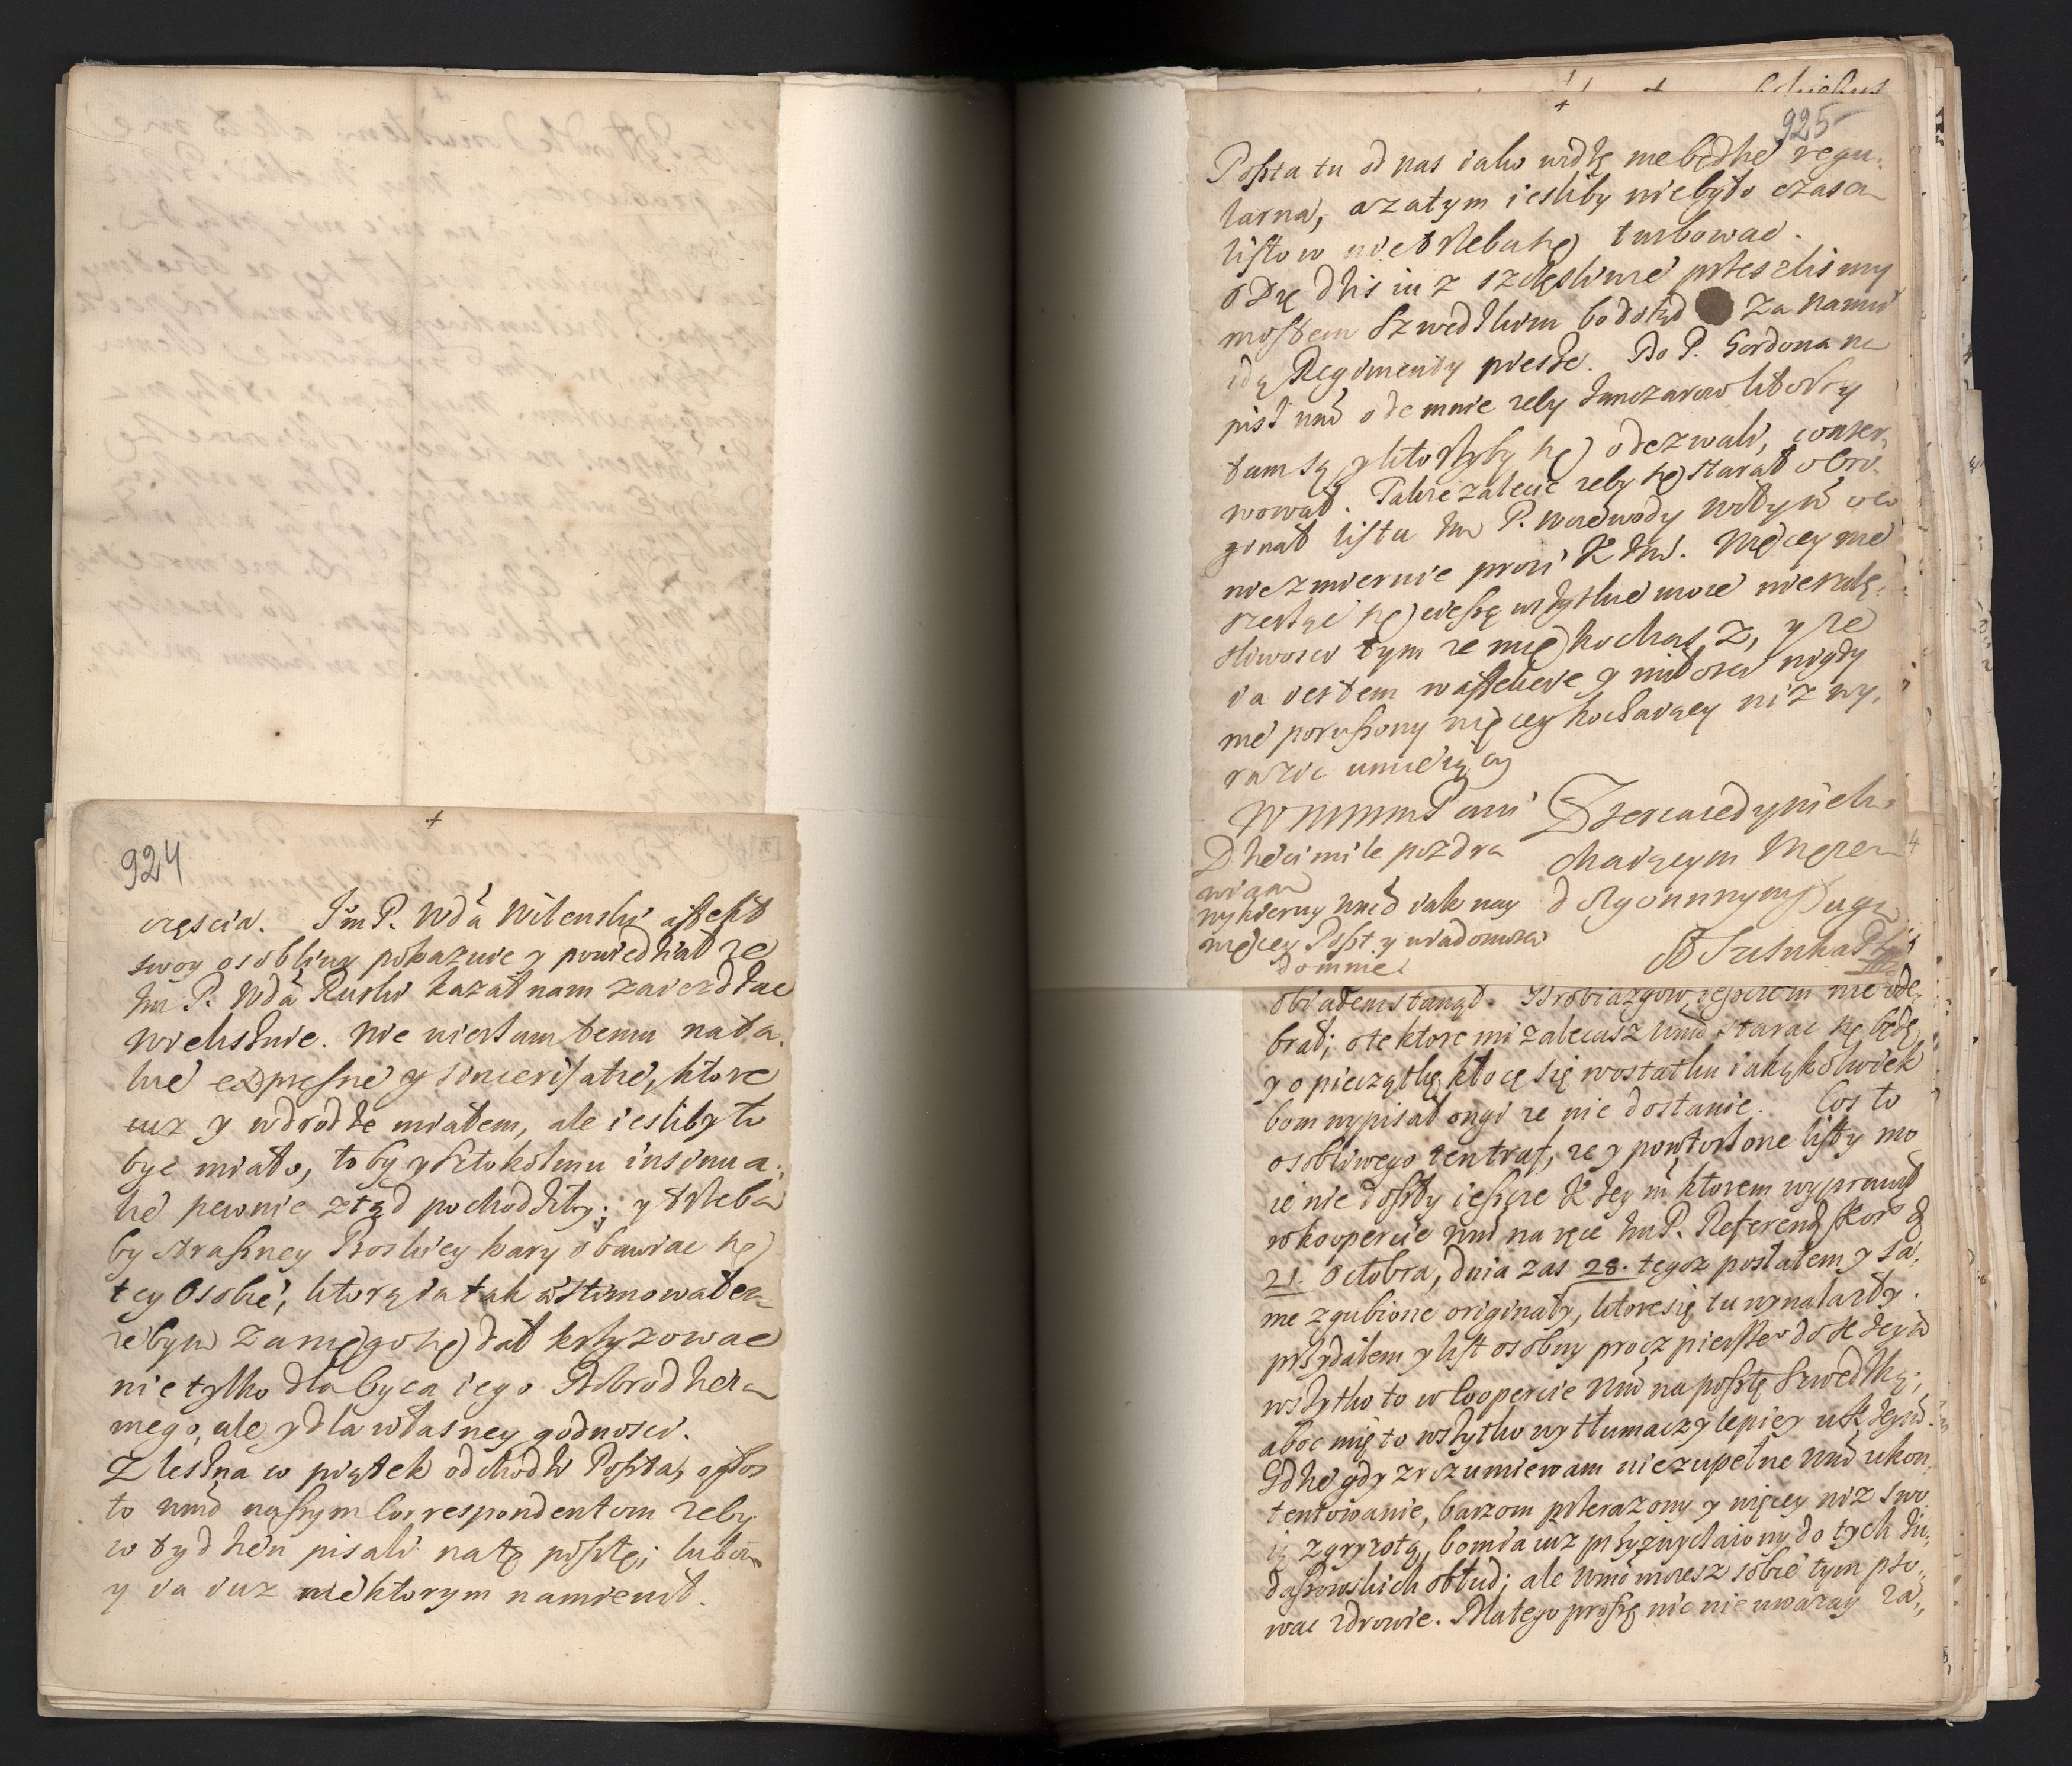 924
częscia. Jm P. Wda Wilenski affekt
swoy osobliwy pokazuie y powiedział ze
Jm P. Wda Ruski kazał nam zaiezdzac
wielisknie. Nie wierzam temu na ta
kie expresne y sincerisatie, ktore
iuz y wdrodze miałem, ale iesliby to
być miało, to by y Sztokolmu insinua
cie pewnie ztąd pochodziły; y trzeba
by straszney Boskiey kary obawiac się
tey Osobie, ktorą ia tak estimowałem
ze bym za niego się dał krzyzowac
nie tylko dla oyca iego Dobrodzieia
mego, ale y dla własney godnosci.
Z Leszna w piątek odchodzi Poszta, ogłos
to Wmć naszym Correspondentom zeby
w tydzień pisali na tę posztę; lubo
y ia iuz niektorym namienił.
925
Poszta tu od nas iako widzę nie będzie regu
larna, a zatym iesliby nie było czasem
listow nie trzeba się turbowac.
Odrę dzis iuz szczęsliwie przeszlismy
mostem Szwedzkim bo dotąd za nami
idą Regimenty piesze. Do P. Gordona na
pisz Wmć odemnie zeby Janczarow ktorzy
tam są, y ktorzyby się odezwali, conser
wował. Takze zalecić zeby się starał o ori
ginał listu Jm P. Woiewody
niezmiernie prosi K Jm. Więcey nie
rzestąc się cieszę wszytkie moie nieszczę
sliwosci tym ze mię kochasz, y ze
ia iestem w affekcie y miłosci nigdy
nie poruszony więcey kochaiący niz wy
razic umieiący
WMMMPani Szercaiedynieko
Dzieci mile pozdra chaiącym Męzem
wiam
wybieray Wmć iak nay dozgonnnym Sługą
więcey Poszt y wiadomosci
do mnie.
obiadem stanął. Drobiazgow ieszczem nie ode
brał; o te ktore mi zalecasz Wmć starac się będę
y o pieczątkę, ktocę się wostatku iakąkolwiek
bom wypisał ongi ze nie dostanie. Cos to
osobliwego zentraf, ze y powtorzone listy mo
ie nie doszły ieszcze K Jey m ktorem wyprawił
w kopercie Wmć na ręce Jm P. Referend. Kor. d
21. Octobra, dnia zas 28. tegoz posłałem y sa
me zgubione originały, ktore się tu wynalazły.
przydałem y list osobny procz pierszego do K Jeym
wszytko to w Coopercie Wmć na posztę Szwedzką;
aboc mię to wszytko wytłumaczy lepiey u K Jeym.
Gdzie gdy zrozumiewam niezupełne Wmć ukon
tentowanie, barzom przerazony y więcey niz swo
ią zgryzotą, bom ia iuz przyzwyczaiony do tych Ju
daszowskich obłud; ale Wmć mozesz sobie tym pso
wac zdrowie. Dlatego proszę nic nie uwazay za